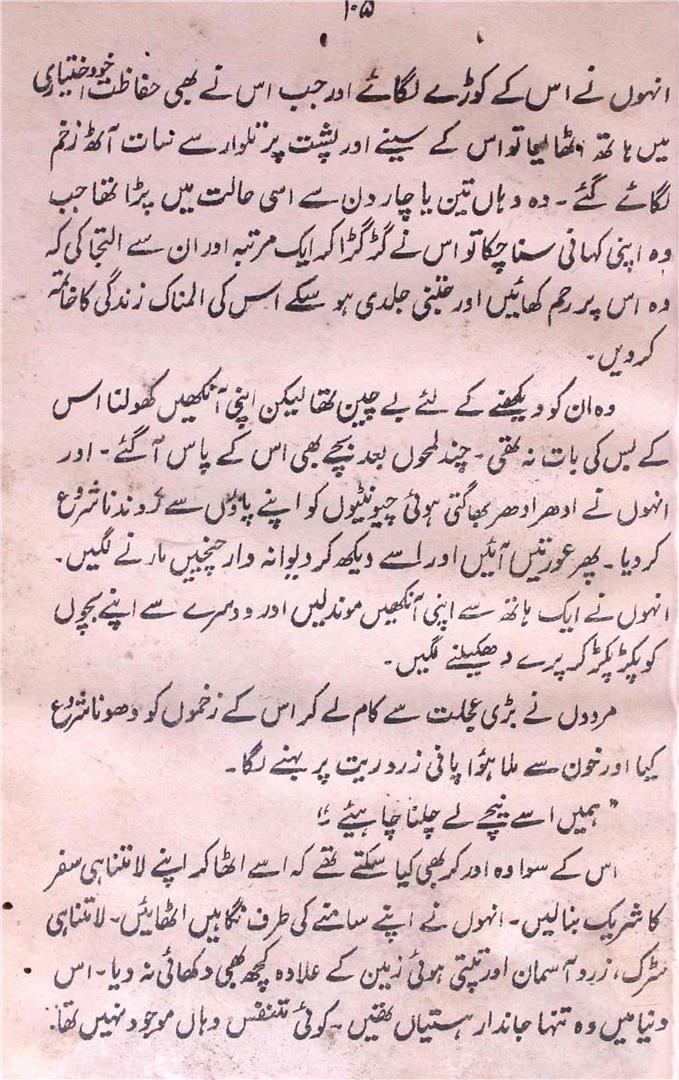 ۱۰۵
انہوں نے اس کے کوڑے لگائے اور جب اس نے بھی حفاظت خود اختیاری
میں ہاتھ اٹھا لیا تو اس کے سینے اور پشت پر تلوار سے سات آٹھ زخم
لگائے گئے۔ وہ وہاں تین یا چار دن سے اسی حالت میں پڑا تھا جب
وہ اپنی کہانی سنا چکا تو اس نے گڑگڑا کر ایک مرتبہ اور ان سے التجا کی کہ
وہ اس پر رحم کھائیں اور جتنی جلدی ہو سکے اس کی المناک زندگی کا خاتمہ
کر دیں۔
وہ ان کو دیکھنے کے لئے بے چین تھا لیکن اپنی آنکھیں کھولنا اس
کے بس کی بات نہ تھی۔ چند لمحوں بعد بچے بھی اس کے پاس آ گئے۔ اور
انہوں نے ادھر ادھر بھاگتی ہوئی چیونٹیوں کو اپنے پاؤں سے روندنا شروع
کر دیا۔ پھر عورتیں آئیں اور اسے دیکھ کر دیوانہ وار چیخیں مارنے لگیں۔
انہوں نے ایک ہاتھ سے اپنی آنکھیں موند لیں اور دوسرے سے اپنے بچوں
کو پکڑ پکڑ کر پرے دھکیلنے لگیں۔
مردوں نے بڑی عجلت سے کام لے کر اس کے زخموں کو دھونا شروع
کیا اور خون سے ملا ہوٗا پانی زرد ریت پر بہنے لگا۔
"ہمیں اسے نیچے لے چلنا چاہیئے۔"
اس کے سوا وہ اور کر بھی کیا سکتے تھے کہ اسے اٹھا کر اپنے لامتناہی سفر
کا شریک بنا لیں۔ انہوں نے اپنے سامنے کی طرف نگاہیں اٹھائیں۔ لامتناہی
سڑک، زرد آسمان اور تپتی ہوئی زمین کے علاوہ کچھ بھی دکھائی نہ دیا۔ اس
دنیا میں وہ تنہا جاندار ہستیاں تھیں۔ کوئی متنفس وہاں موجود نہیں تھا۔